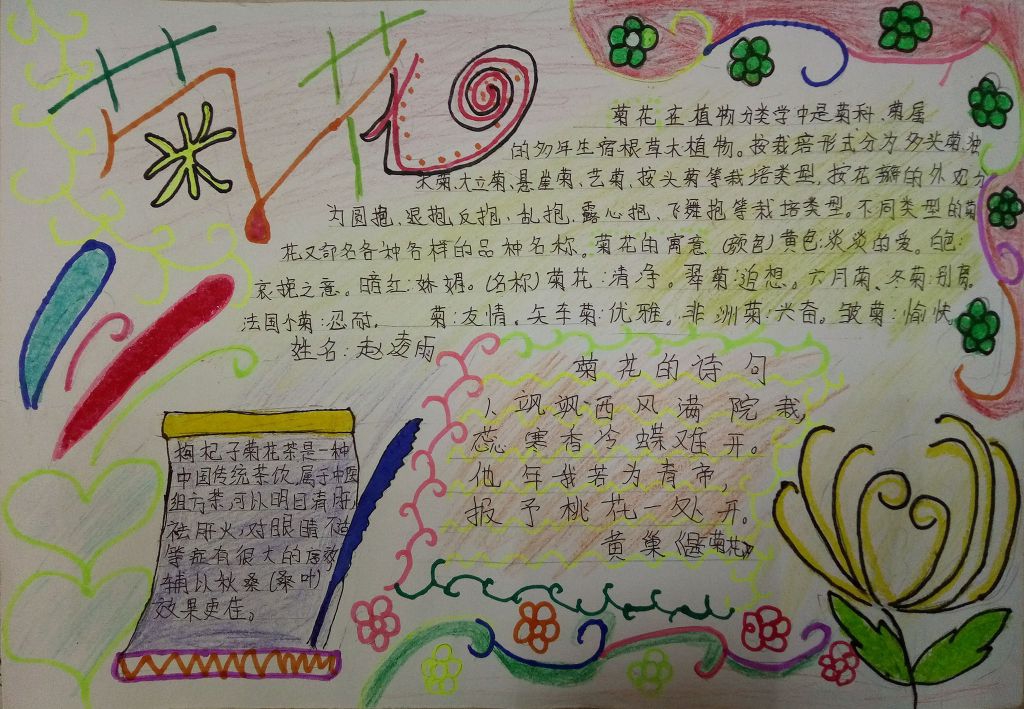 菊花
菊花在植物分类学中是菊科、菊属
的多年生宿根草木植物。按栽培形式分为多头菊、独
木菊、大立菊、悬崖菊、艺菊、按头菊等栽培类型，按花瓣的外观分
为圆抱、退抱、反抱、乱抱、露心抱、飞舞抱等栽培类型。不同类型的菊
花又命名各种各样的品种名称。菊花的寓意（颜色）黄色：淡淡的爱。白色：
哀挽之意。暗红：妩媚。（名称）菊花：清净。翠菊：追想。六月菊、冬菊：别离。
法国小菊：忍耐. 菊：友情。矢车菊：优雅。非洲菊：兴奋。皱菊：愉快。
姓名：赵凌雨
菊花的诗句
1、飒飒西风满院栽，
蕊寒香冷蝶难开。
他年我若为青帝，
报予桃花一处开。
黄巢《题菊花》
枸杞子菊花茶是一种
中国传统茶饮，属于中医
组方茶，可以明目清肝，
祛肝火，对眼睛不适
等症有很大的疗效
辅以秋桑（桑叶）
效果更佳。